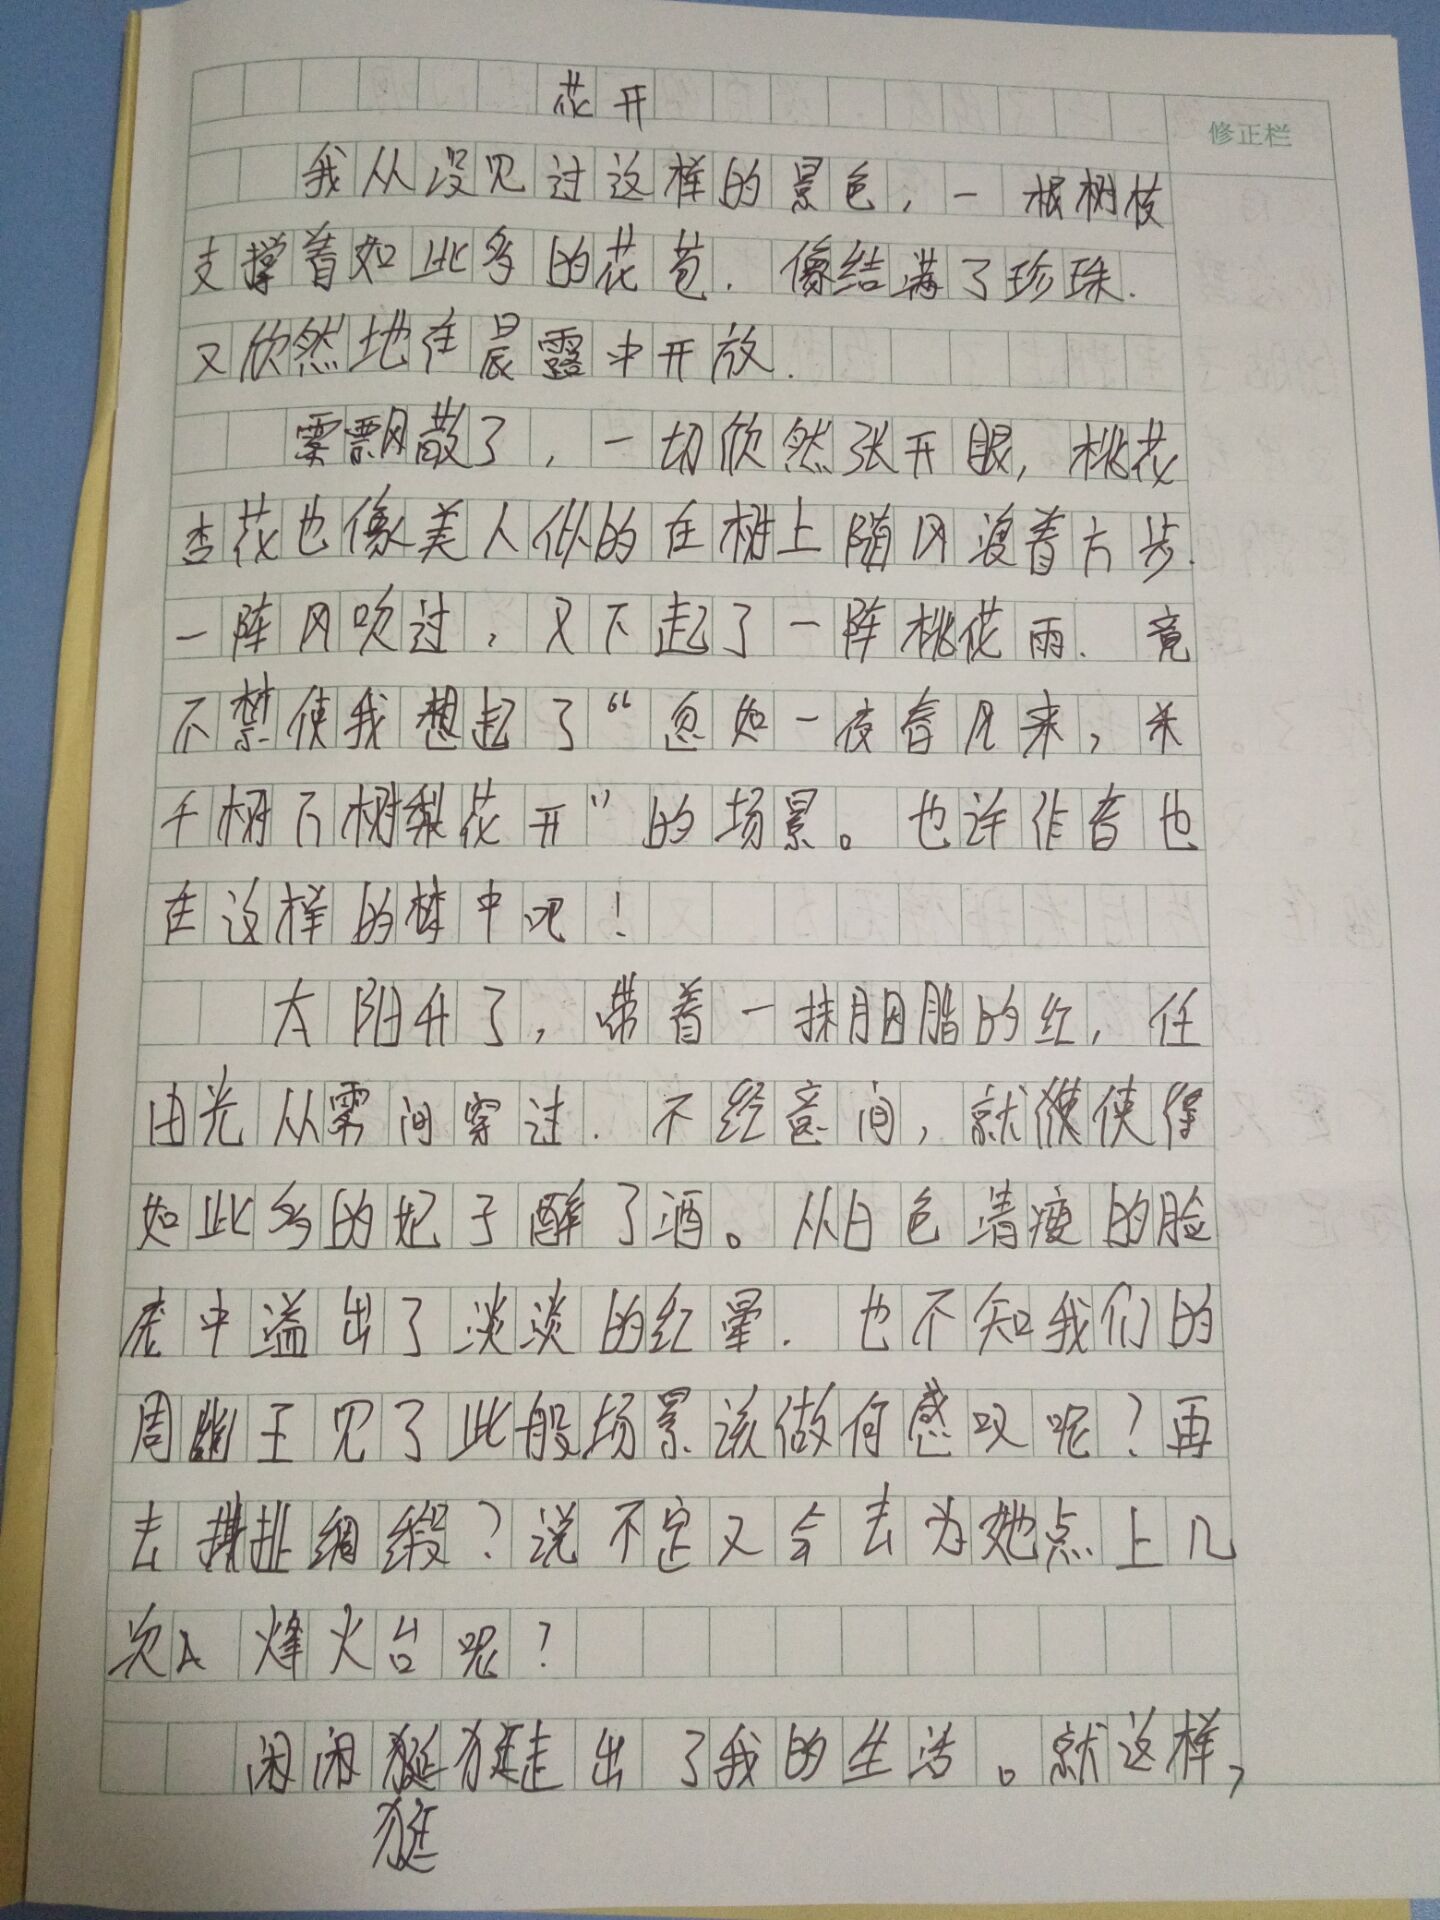 花开
修正栏
我从没见过这样的景色，一根树枝
支撑着如此多的花苞．像结满了珍珠．
又欣然地在晨露中开放．
雾飘散了，一切欣然张开眼，桃花
杏花也像美人似的在树上随风漫着方步．
一阵风吹过，又下起了一阵桃花雨．竟
不禁使我想起了“忽如一夜春风来，
千树万树梨花开”的场景。也许作者也
在这样的梦中吧！
太阳升了，带着一抹胭脂的红，任
由光从雾间穿过．不经意间，就使得
如此多的妃子醉了酒。从白色清瘦的脸
庞中溢出了淡淡的红晕．也不知我们的
周幽王见了此般场景该做何感叹呢？再
去撕扯绸缎？说不定又会去为她点上几
次烽火台呢？
闲闲走出了我的生活。就这样，